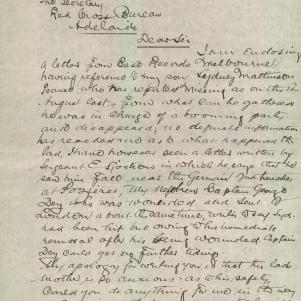 The Secretary
Red Cross Bureau
Adelaide
Dear Sir
I am Enclosing
a letter from Base Records Melbourne
having reference to my son Sydney
who was reported Missing as on the
August last. From what can be gathered
he was in charge of a bombing party
and disappeared, no definite information
has reached me as to what happened the
lad. I have however seen a letter written by
Sergeant in which he says that he
saw him fall near the German 2nd trenches
at Pozieres, My Nephew Captain George
Doy who was wounded and sent to
London about the same time, writes to say Syd.
had been hit but owing to his immediate
removal after his being wounded Captain
Doy could get no further tidings
My apology for writing you is that the lads
Mother is so anxious as to his safety,
Could you do anything for me in the way